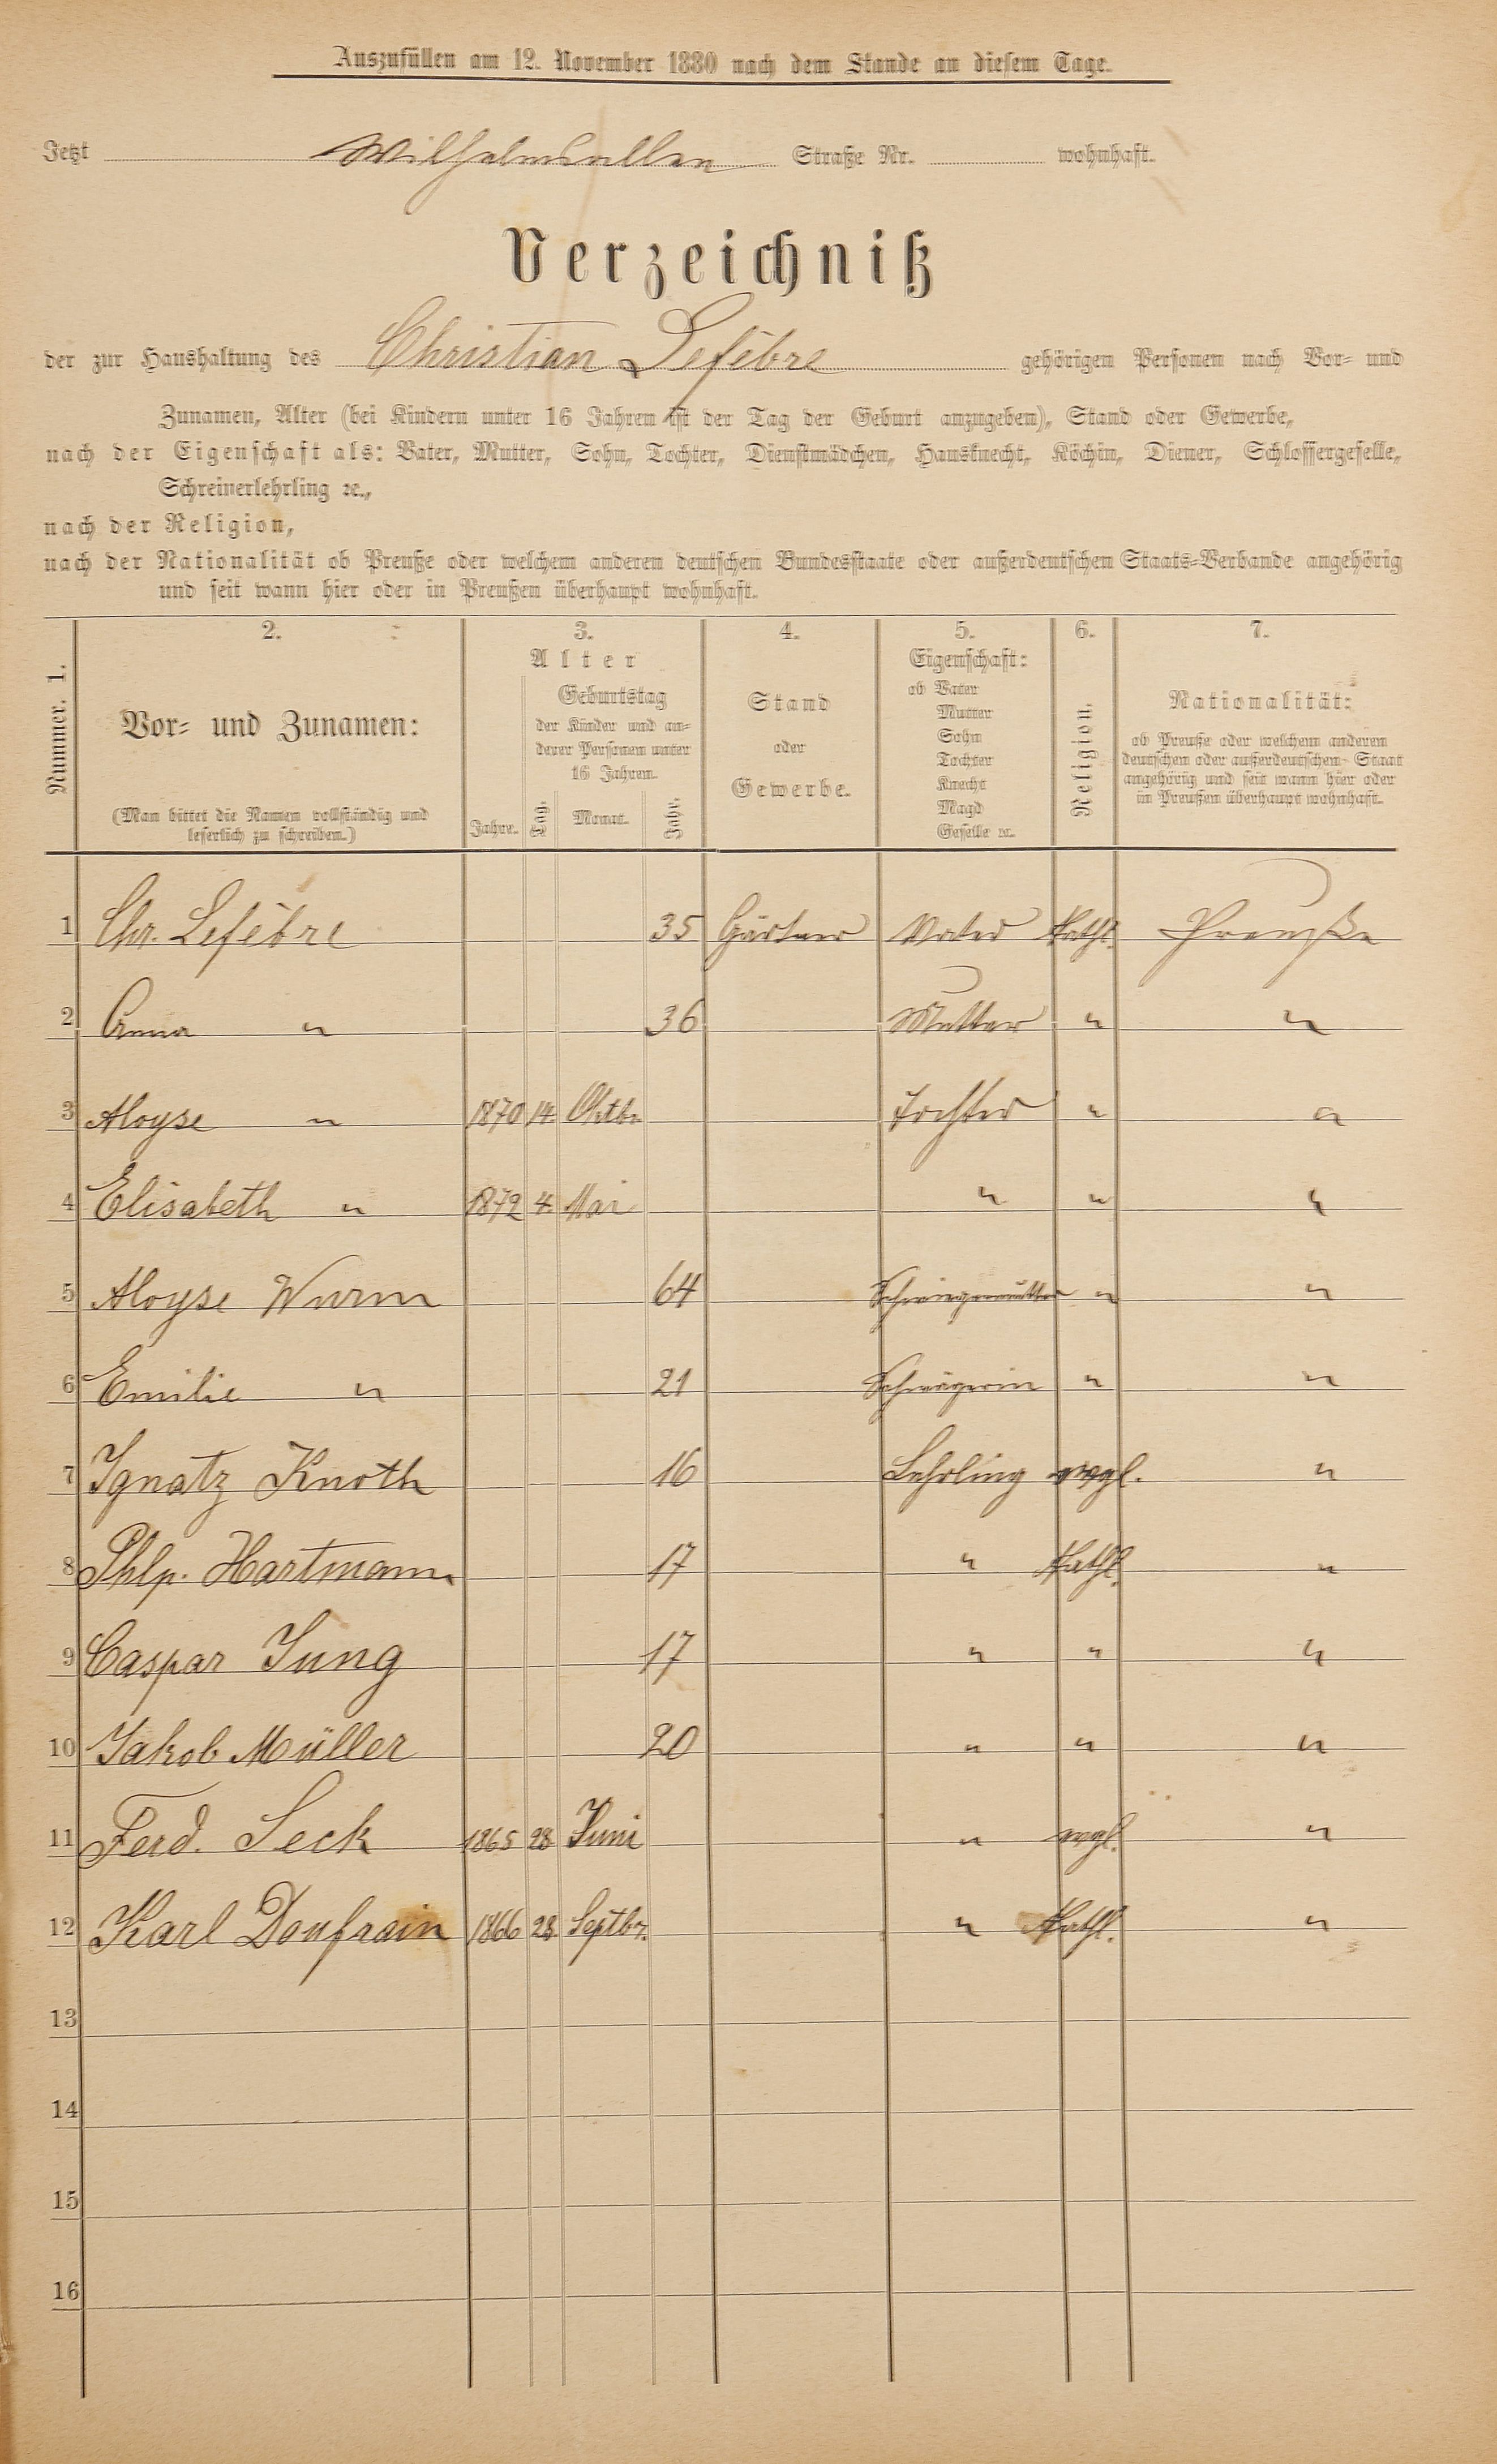 Auszufüllen am 12. November 1880 nach dem Stande an diesem Tage.
Jetzt Wilhelmsallee Straße Nr. wohnhaft.
Verzeichniß
der zur Haushaltung des Christian Lefèbre gehörigen Personen nach Vor- und
Zunamen, Alter (bei Kindern unter 16 Jahren ist der Tag der Geburt anzugeben), Stand oder Gewerbe,
nach der Eigenschaft als: Vater, Mutter, Sohn, Tochter, Dienstmädchen, Hausknecht, Köchin, Diener, Schlossergeselle,
Schreinerlehrling ꝛc.,
nach der Religion,
nach der Nationalität ob Preuße oder welchem anderen deutschen Bundesstaate oder außerdeutschen Staats-Verbande angehörig
und seit wann hier oder in Preußen überhaupt wohnhaft.
Nummer. 1.
2.
Vor- und Zunamen:
(Man bittet die Namen vollständig und
leserlich zu schreiben.)
3.
Alter
Geburtstag
der Kinder und an-
derer Personen unter
16 Jahren.
Jahre. Tag. Monat. Jahr.
4.
Stand
oder
Gewerbe.
5.
Eigenschaft:
ob Vater
Mutter
Sohn
Tochter
Knecht
Magd
Geselle ꝛc.
6.
Religion.
7.
Nationalität:
ob Preuße oder welchem anderem
deutschen oder außerdeutschem Staat
angehörig und seit wann hier oder
in Preußen überhaupt wohnhaft.
1 Chr. Lefèbre 35 Gärtner Vater Kathl. Preuße
2 Anna " 36 Mutter " "
3 Aloyse " 1870 14. Oktbr Tochter " "
4 Elisabeth " 1872 4. Mai " " "
5 Aloyse Wurm 64 Schwiegermutter " "
6 Emilie " 21 Schwägerin " "
7 Ignatz Knoth 16 Lehrling evgl. "
8 Phlp. Hartmann 17 " Kathl. "
9 Caspar Jung 17 " " "
10 Jakob Müller 20 " " "
11 Ferd. Seck 1865 28 Juni " evgl. "
12 Karl Doufrain 1866 28. Septbr. " Kathl. "
13
14
15
16